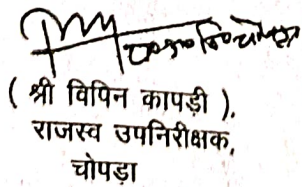 ( श्री विपिन कापड़ी ),
राजस्व उपनिरीक्षक,
चोपड़ा